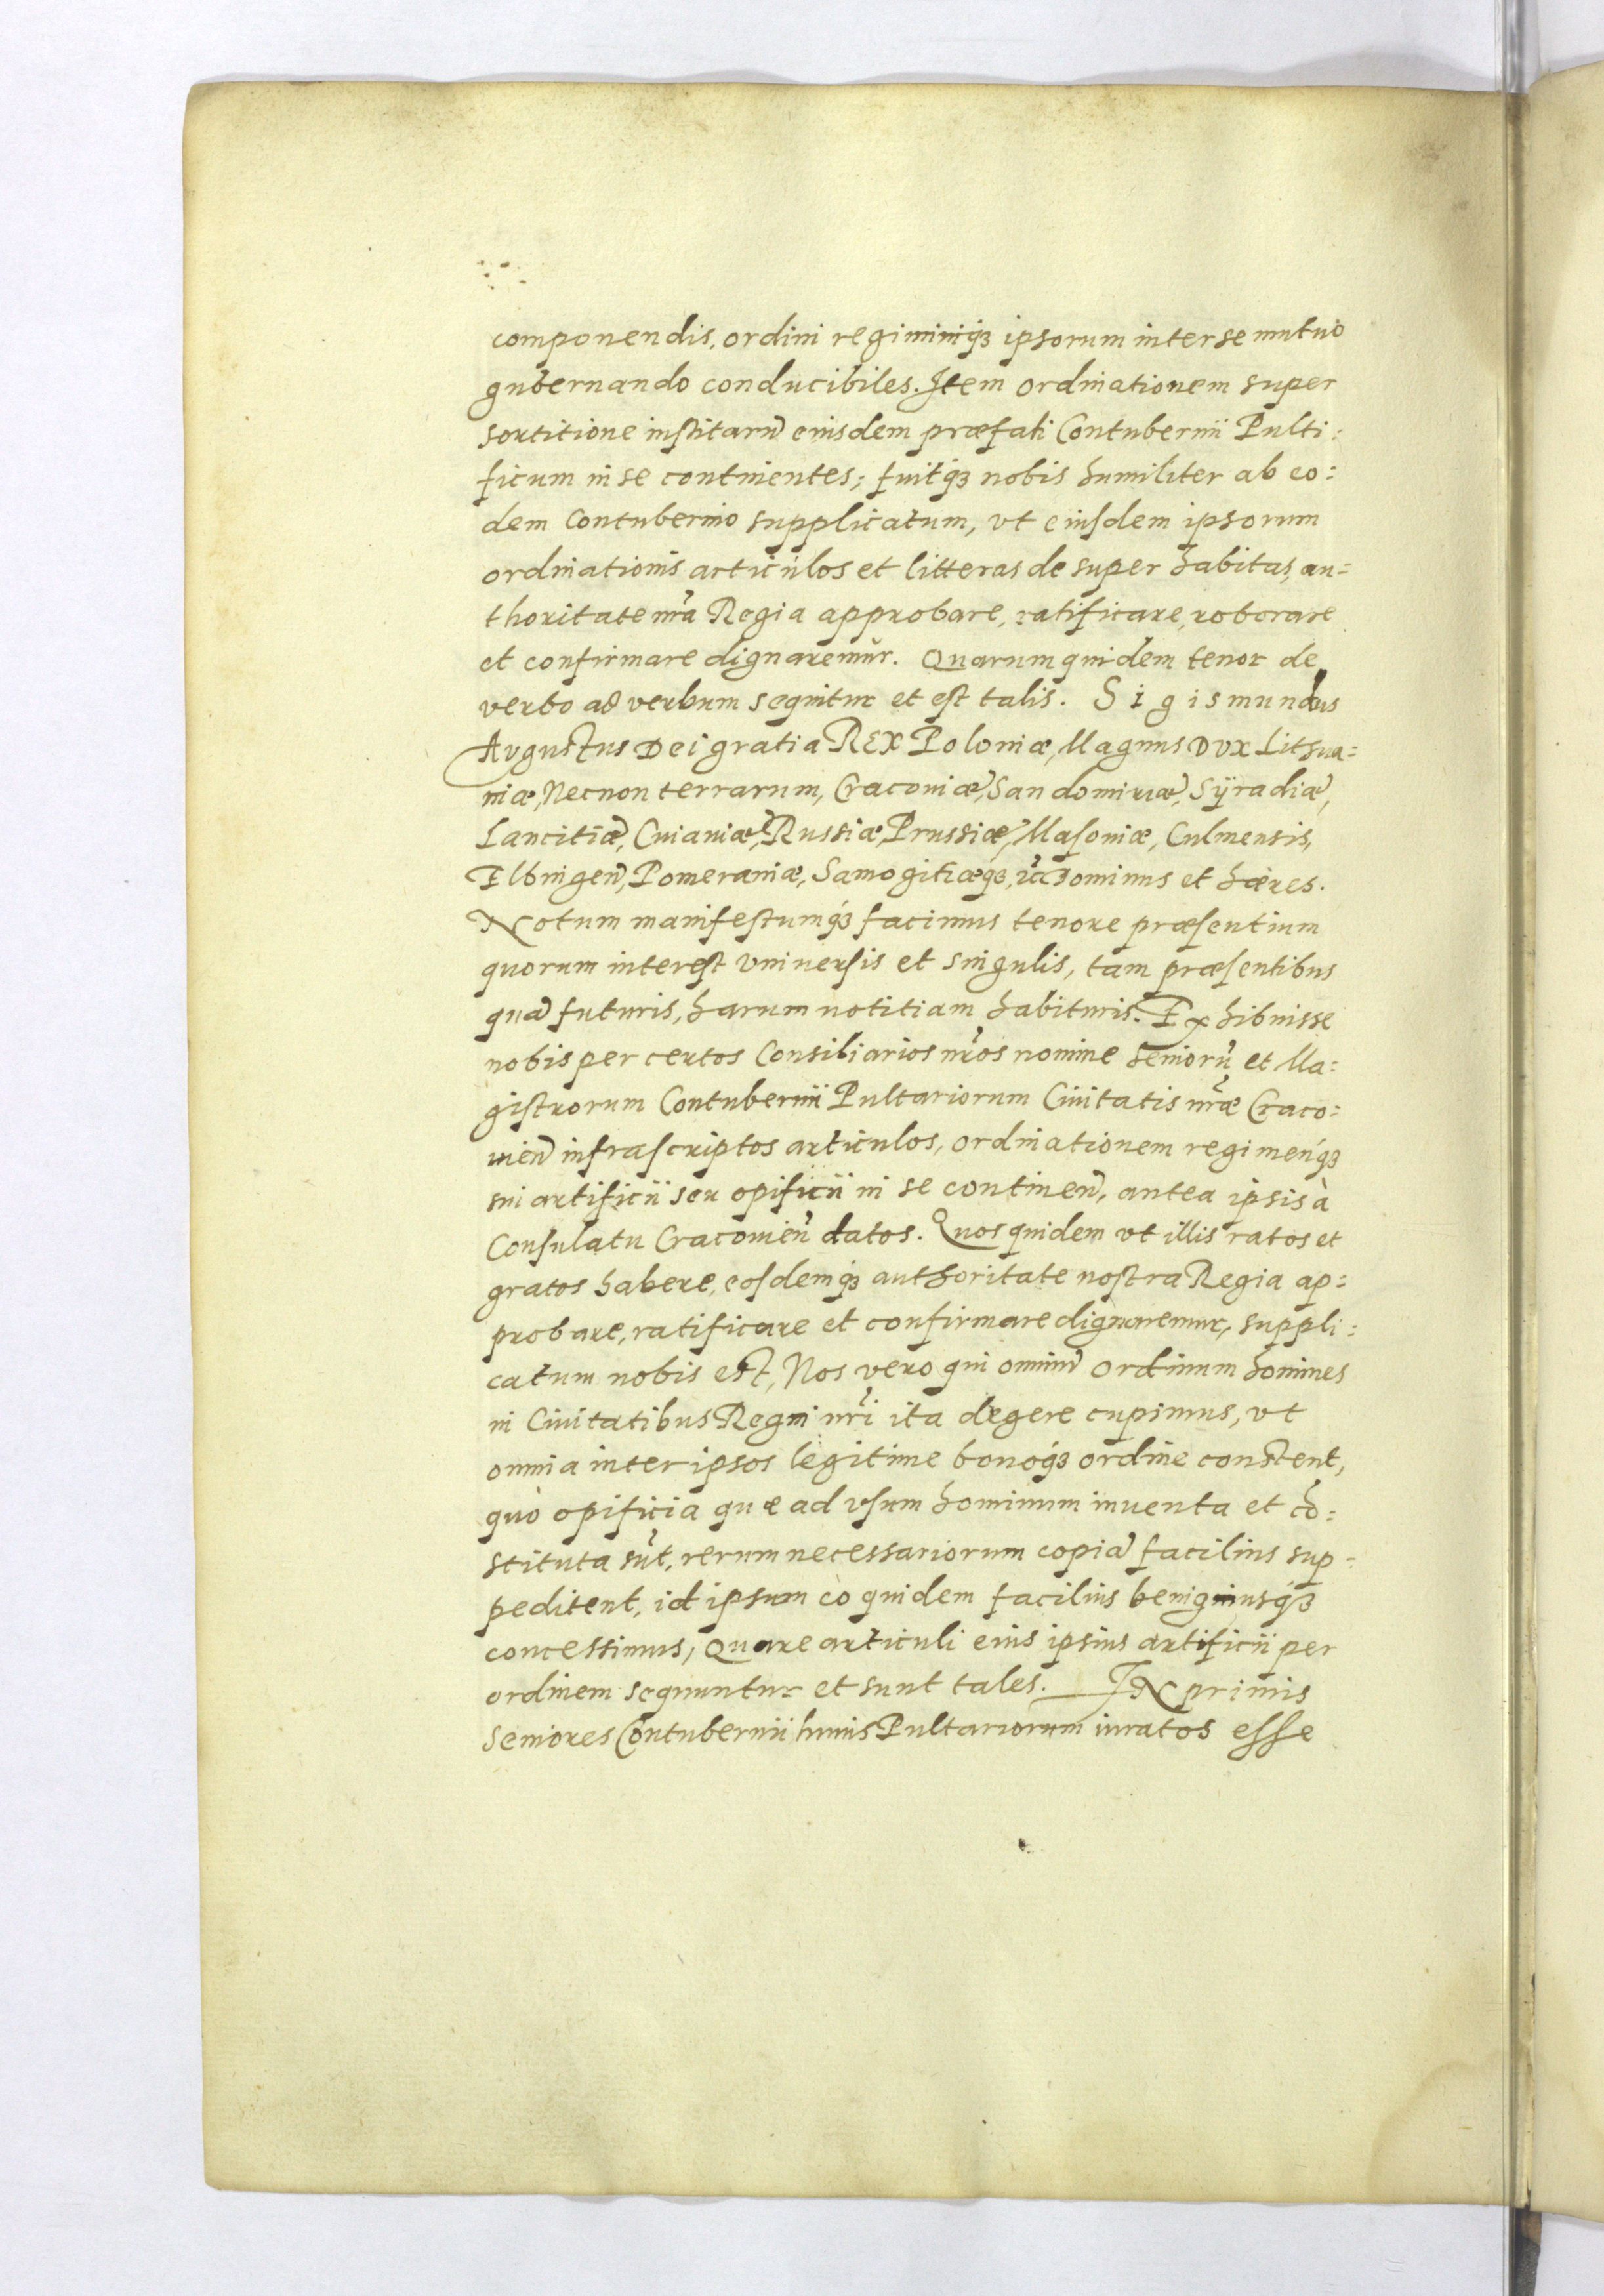 componendis, ordini regiminiq́ꝫ ipsorum inter se mutuo
gubernando conducibiles. Item ordinationem super
sortitione institarũ eiusdem præfati Contubernii Pulti:
ficum in se continentes; fuitq́ꝫ nobis humiliter ab eo:
dem Contubernio supplicatum, vt eiusdem ipsorum
ordinationis articulos et litteras desuper habitas, au=
thoritate nr̃a Regia approbare, ratificare, roborare
et confirmare dignaremur. Quarum quidem tenor de
verbo ad verbum sequitur et est talis. Sigismundus
Augustus Dei gratia REX Poloniæ, Magnus DVX Lithua=
niæ, Necnon terrarum, Cracoviæ, Sandomiriæ, Sÿradiæ,
Lancitiæ, Cuiaviæ, Russiæ, Prussiæ, Masoviæ, Culmensis,
Elbingeñ, Pomeraniæ, Samogitiæq́ꝫ, Dominus et hæres.
Notum manifestumq́ꝫ facimus tenore præsentium
quorum interest vniuersis et singulis, tam præsentibus
quã futuris, harum notitiam habituris. Exhibuisse
nobis per certos Consiliarios nr̃os nomine Seniorũ et Ma:
gistrorum Contubernii Pultariorum Ciuitatis nr̃æ Craco:
uieñ infrascriptos articulos, ordinationem regimenq́ꝫ
sui artificii seu opificii in se contineñ, antea ipsis à
Consulatu Cracouieñ datos. Quos quidem vt illis ratos et
gratos habere, eosdemq́ꝫ authoritate nostra Regia ap:
probare, ratificare et confirmare dignaremur, suppli:
catum nobis est, Nos vero qui omniũ ordinum homines
in Ciuitatibus Regni nr̃i ita degere cupimus, vt
omnia inter ipsos legitime bonoq́ꝫ ordine constent,
quò opificia quæ ad vsum hominum inuenta et cõ:
stituta sũt, rerum necessariorum copiã facilius sup=
peditent, id ipsum eò quidem facilius benigniusq́ꝫ
concessimus, Quare articuli eius ipsius artificii per
ordinem sequuntur et sunt tales. IN primis
Seniores Contubernii huius Pultariorum iuratos esse